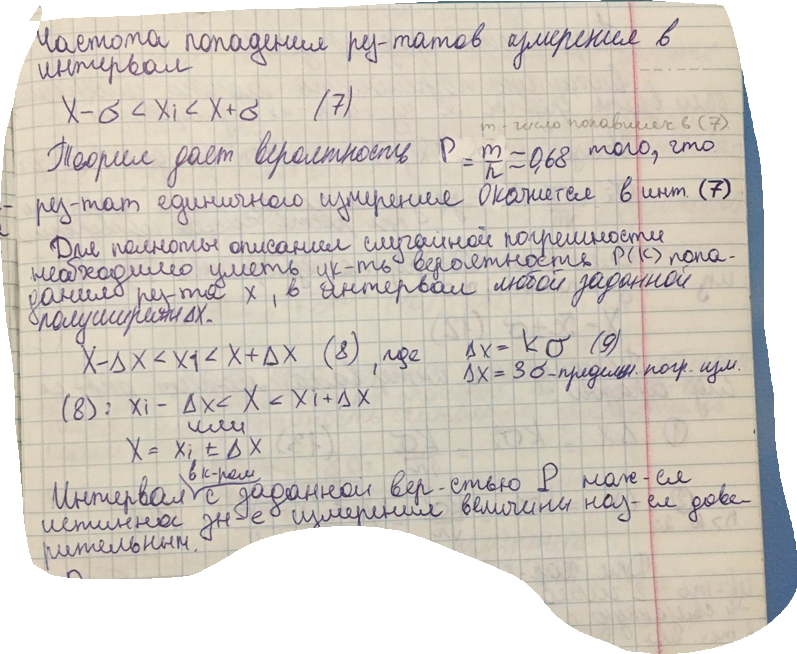 Частота попадения рез-татов измерения в
интервал
X-σ < Xi < X+σ (7)
m - число попавших в (7)
Теория дает вероятность P = m/n ≈ 0,68 того, что
рез-тат единичного измерения окажется в инт. (7)
Для полноты описания случайной погрешности
необходимо уметь ук-ть вероятность P(K) попа-
дания рез-та x, в интервал любой заданной
полуширины Δx.
X-ΔX < X1 < X+ΔX (8), где Δx = kσ (9)
Δx = 3σ - предельн. погр. изм.
(8): Xi - Δx < X < Xi + ΔX
или
X = Xi ± ΔX
в к-ром
Интервал с заданной вер-стью P нах-ся
истинное зн-е измерения величины наз-ся дове-
рительным.